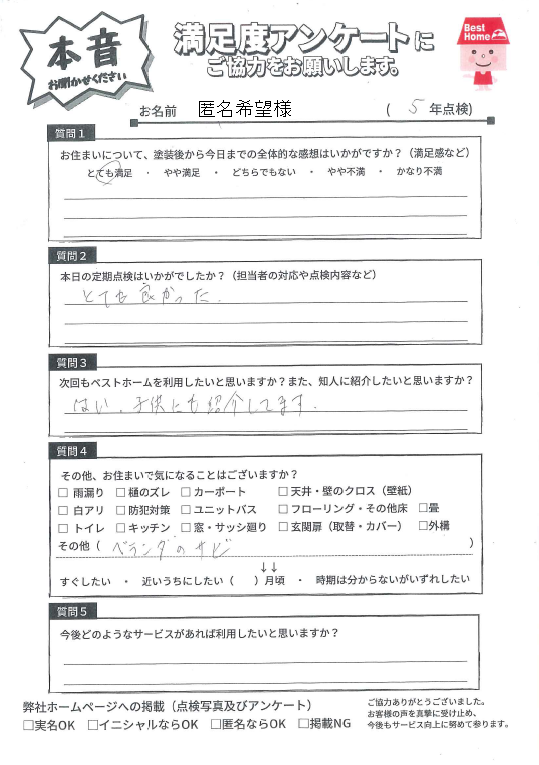 本音
お聞かせください
満足度アンケートに
ご協力をお願いします。
Best Home
お名前 匿名希望様 ( 5 年点検)
質問1
お住まいについて、塗装後から今日までの全体的な感想はいかがですか？（満足感など）
とても満足 ・ やや満足 ・ どちらでもない ・ やや不満 ・ かなり不満
質問2
本日の定期点検はいかがでしたか？（担当者の対応や点検内容など）
とても良かった.
質問3
次回もベストホームを利用したいと思いますか？また、知人に紹介したいと思いますか？
はい. 子供にも紹介してます.
質問4
その他、お住まいで気になることはございますか？
□ 雨漏り □ 樋のズレ □ カーポート □ 天井・壁のクロス（壁紙）
□ 白アリ □ 防犯対策 □ ユニットバス □ フローリング・その他床 □畳
□ トイレ □ キッチン □ 窓・サッシ廻り □ 玄関扉（取替・カバー） □外構
その他（ ベランダのサビ ）
↓↓
すぐしたい ・ 近いうちにしたい（ ）月頃 ・ 時期は分からないがいずれしたい
質問5
今後どのようなサービスがあれば利用したいと思いますか？
弊社ホームページへの掲載（点検写真及びアンケート）
□実名OK □イニシャルならOK □匿名ならOK □掲載NG
ご協力ありがとうございました。
お客様の声を真摯に受け止め、
今後もサービス向上に努めて参ります。